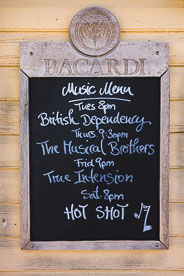 BACARDI
Music Menu
Tues 8pm
British Dependency
Thurs 9:30pm
The Musical Brothers
Frid 9pm
True Intension
Sat 8pm
HOT SHOT